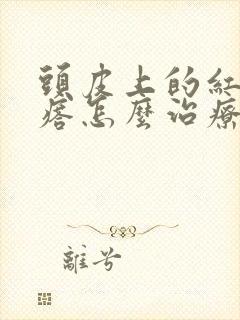 頭皮上的紅
痞怎麼治療
離兮